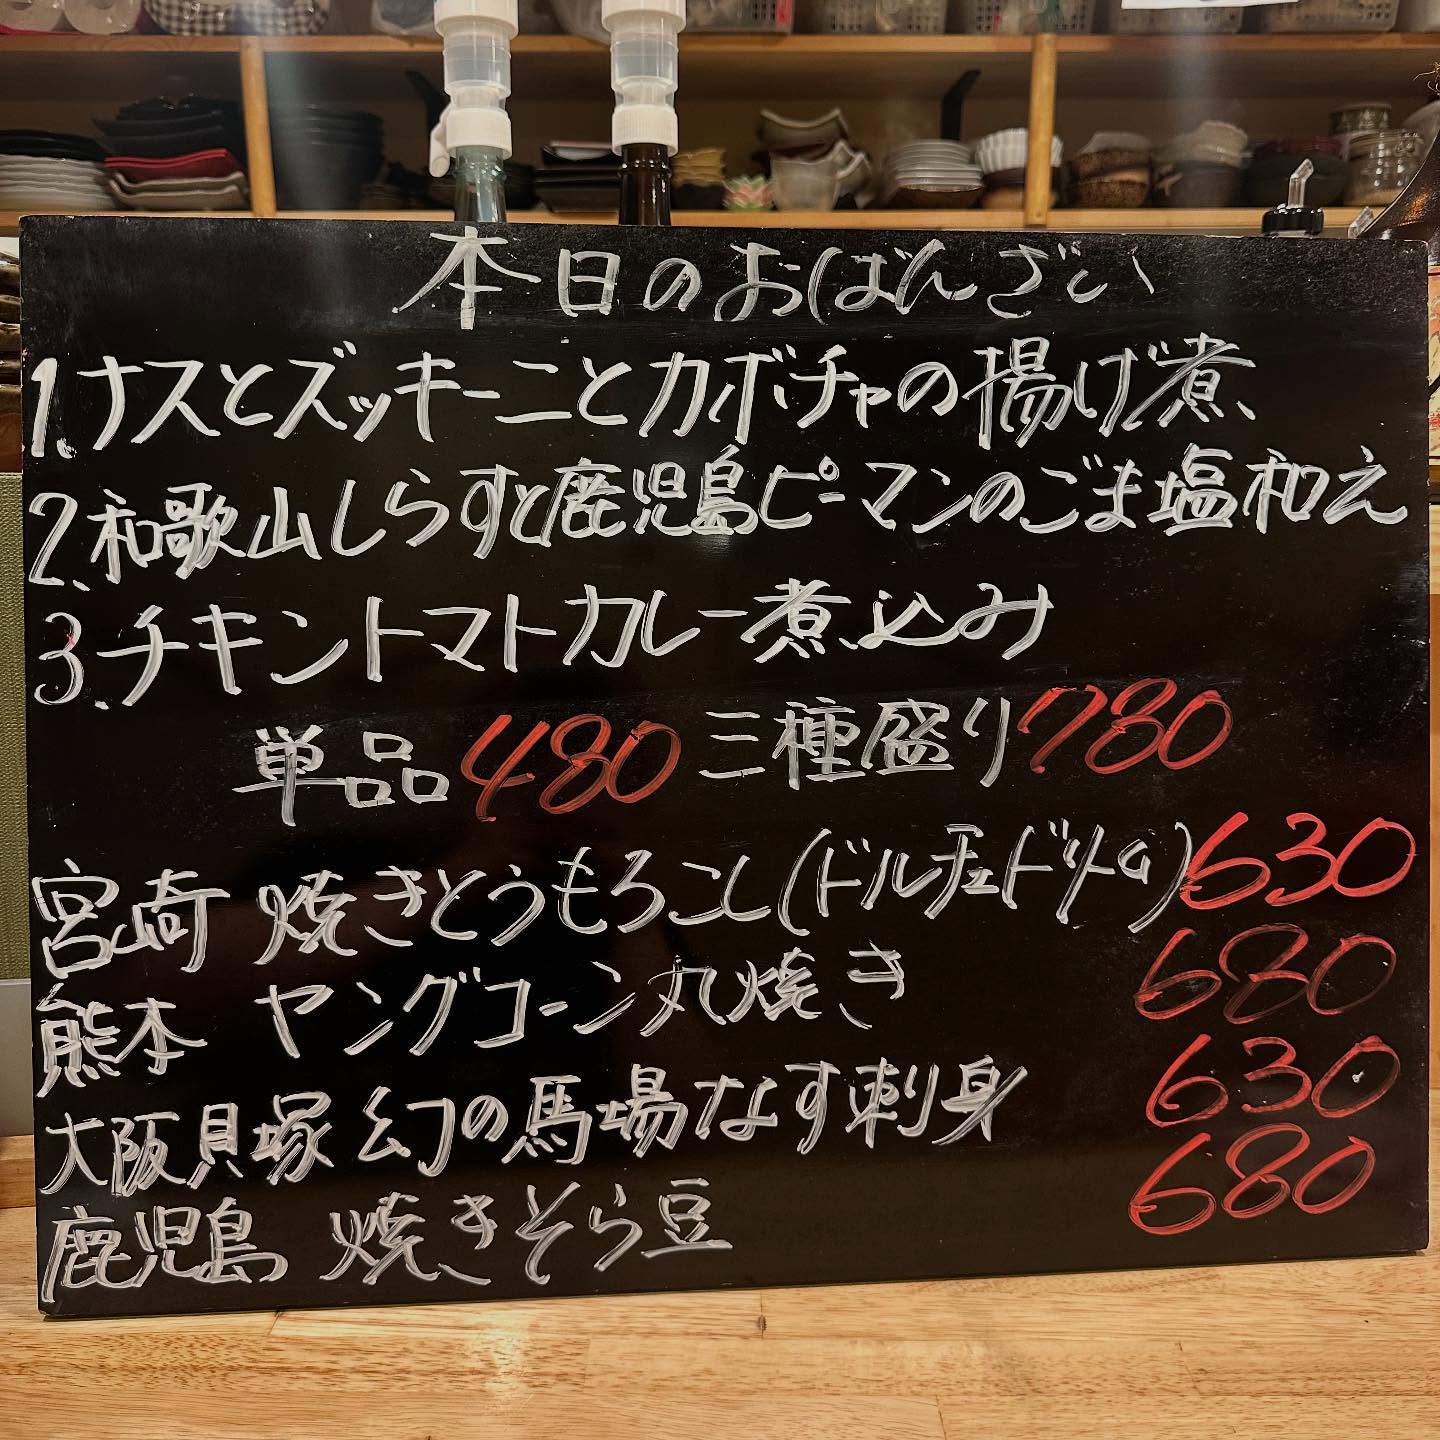 本日のおばんざい
1.ナスとズッキーニとカボチャの揚げ煮
2.和歌山しらすと鹿児島ピーマンのごま塩和え
3.チキントマトカレー煮込み
単品480 三種盛り780
宮崎 焼きとうもろこし(ドルチェドリーム)630
熊本 ヤングコーン丸焼き 680
大阪貝塚 幻の馬場なす刺身 630
鹿児島 焼きそら豆 680